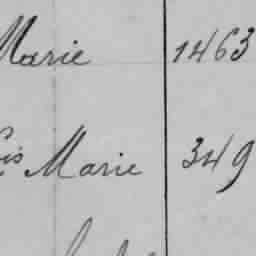 Marie 1463
Marie 349